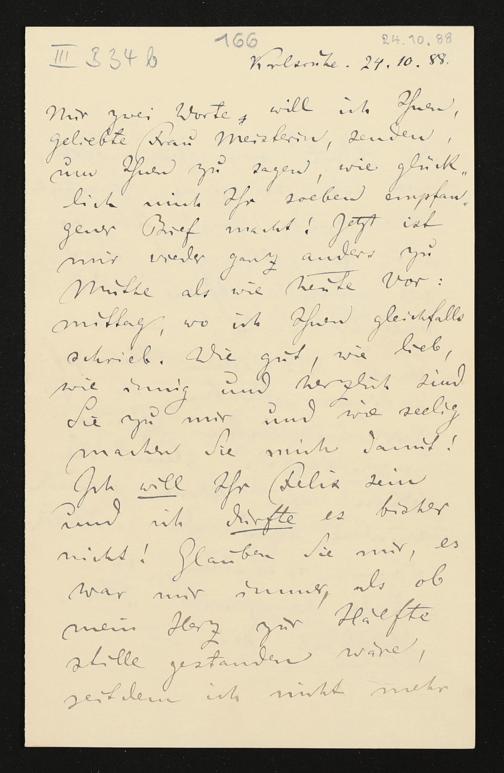 III B 34 b
166
24.10.88
Karlsruhe. 24.10.88.
Nur zwei Worte, will ich Ihnen,
geliebte Frau Meisterin, senden,
um Ihnen zu sagen, wie glück-
lich mich Ihr soeben empfan-
gener Brief macht! Jetzt ist
mir wieder ganz anders zu
Muthe als wie heute Vor:
mittag, wo ich Ihnen gleichfalls
schrieb. Wie gut, wie lieb,
wie innig und herzlich sind
Sie zu mir und wie seelig
machen Sie mich damit!
Ich will Ihr Felix sein
und ich durfte es bisher
nicht! Glauben Sie mir, es
war mir immer, als ob
mein Herz zur Hälfte
stille gestanden wäre,
seitdem ich nicht mehr